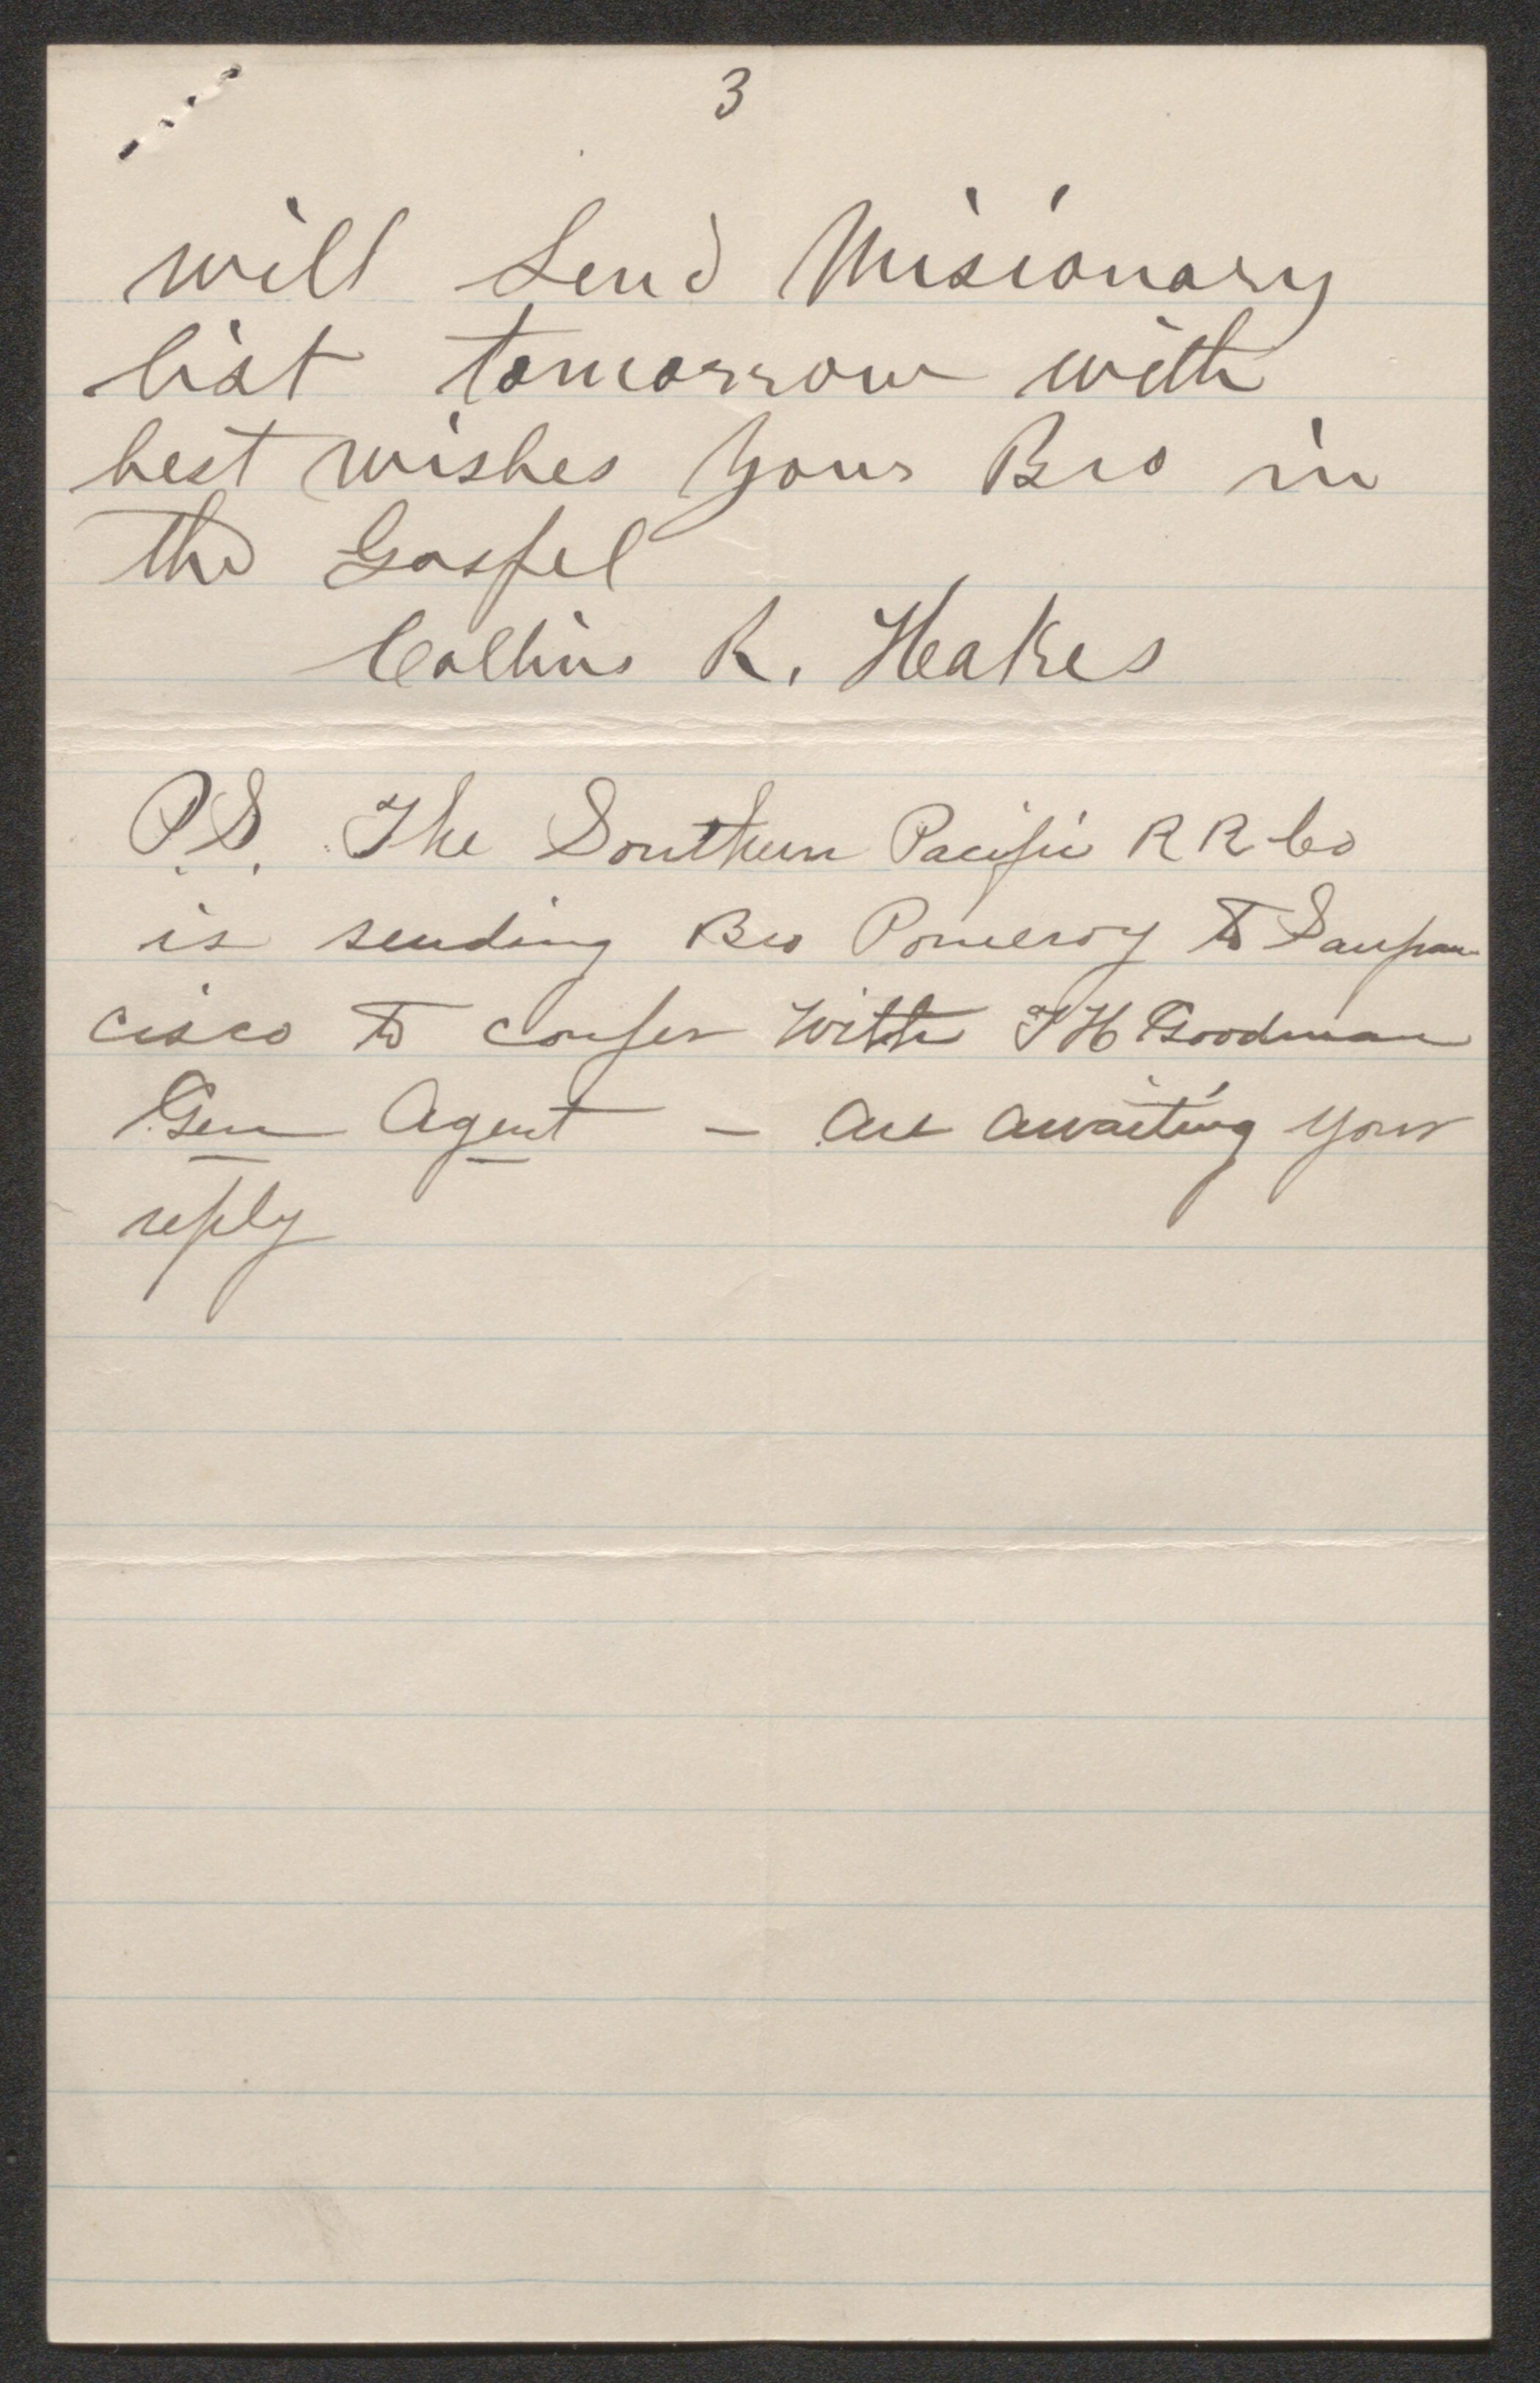 3
will Send Misionary
list tomorrow with
best wishes Your Bro in
the Gospel
Collins R. Hakes
P.S. The Southern Pacific R R Co
is sending Bro Pomeroy to Sanfran
cisco to confer with T H Goodman
Gen Agent - are awaiting your
reply